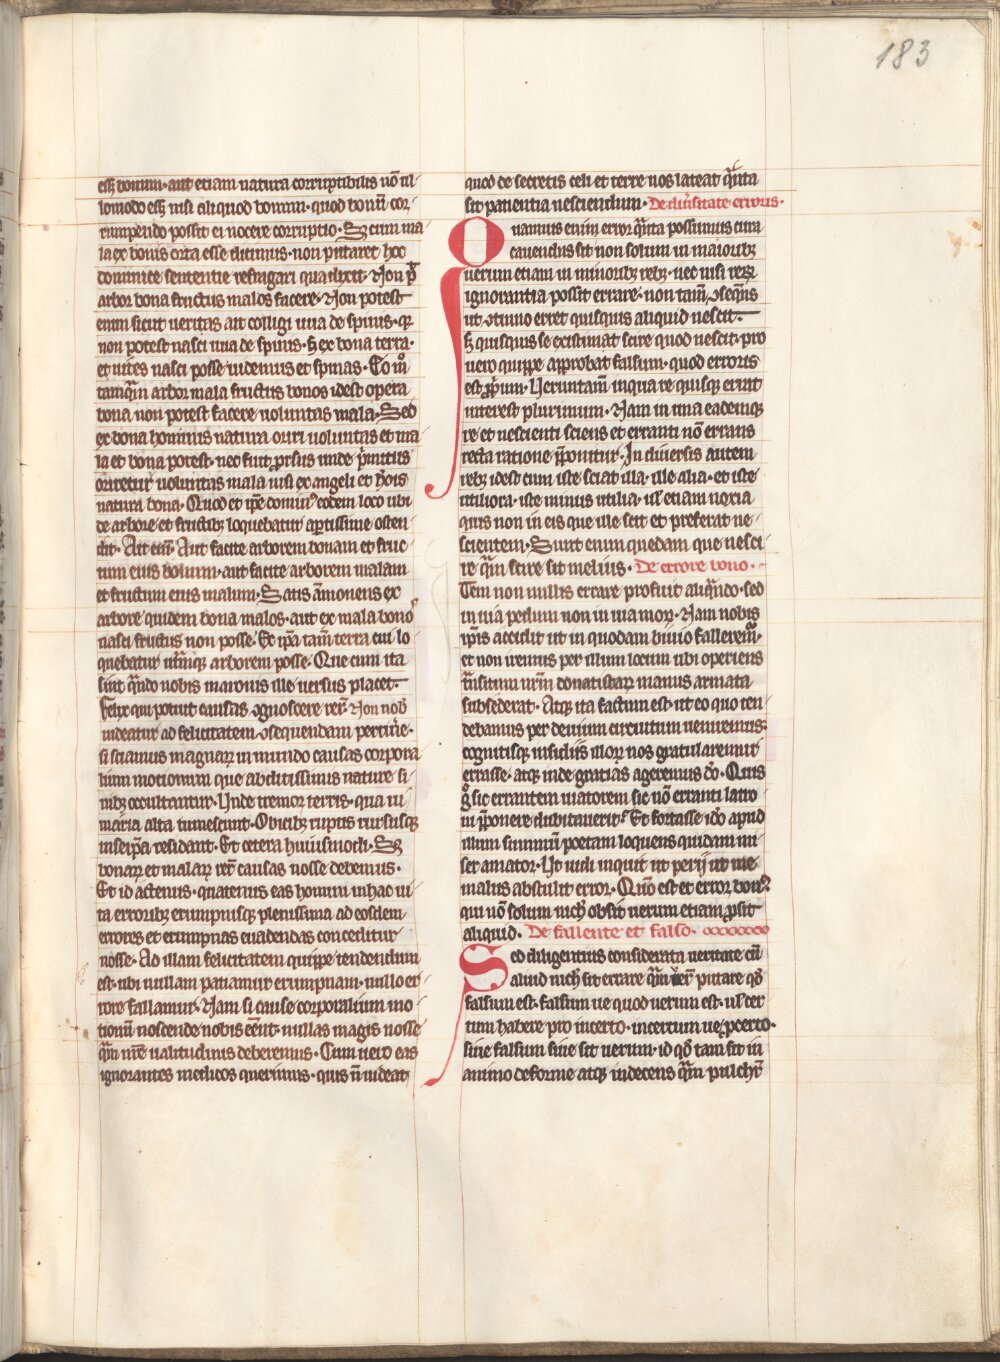 183
esse bonum· aut etiam natura corruptibilis nō nl-
lomodo esse nisi aliquod bonum· quod bonū cor-
rumpendo possit ei nocere corruptio· Set cum ma
la ex bonis orta esse dicimus· non putaret hoc
dominice sententie refragari qua dixit· Non pt̄
arbor bona fructus malos facere· Non potest
enim sicut veritas ait colligi uua de spinis· qr
non potest nasci uua de spinis· sꝫ ex bona terra·
et uites nasci posse uidemus et spinas· Eo mō
tamqm̄ arbor mala fructus bonos idest opera
bona non potest facere uoluntas mala· Sed
ex bona hominis natura oriri uoluntas et ma
la et bona potest· nec fuit prsus unde pimitus
oriretur uoluntas mala nisi ex angeli et hois
natura bona· Quod et ipe domin9 eodem loco ubi
de arbore et fructibꝫ loquebatur aptissime osten
dit· Ait eni· Aut facite arborem bonam et fruc
tum eius bonum· aut facite arborem malam
et fructum eius malum· Satis āmonens ex
arbore quidem bona malos· aut ex mala bonos
nasci fructus non posse· Ex ipa tam̄ terra cui lo
quebatur utrūqꝫ arborem posse· Que cum ita
sint qn̄do nobis maronis ille uersus placet·
Felix qui potuit causas ꝯgnoscere rer̄· Non nob
uideatur ad felicitatem ꝯsequendam pertine·
si sciamus magnarꝫ in mundo causas corpora
lium motionum que abditissimis nature si-
nibꝫ occultantur· Unde tremor terris· qua ui
maria alta tumescunt· Obicibꝫ ruptis rursusqꝫ
in seipa residant· Et cetera huiusmodi· Sꝫ
bonarꝫ et malarꝫ rer̄ causas nosse debemus·
Et id actenus· quatenus eas homini in hac ui
ta erroribꝫ erumpnisqꝫ plenissima ad eosdem
errores et erumpnas euadendas conceditur
nosse· Ad illam felicitatem quippe tendendum
est· ubi nullam patiamur erumpnam· nullo er
rore fallamur· Nam si cause corporalium mo
tionū noscende nobis eent· nullas magis nosse
qm̄ nre ualitudinis deberemus· Cum uero eas
ignorantes medicos querimus· quis n̄ uideat
quod de secretis celi et terre nos lateat qn̄ta
sit patientia nesciendum· De diusitate erroris·
Quamuis enim error qn̄ta possumus cura
cauendus sit non solum in maioribꝫ
uerum etiam in minoribꝫ rebꝫ· nec nisi rerꝫ
ignorantia possit errare· non tam̄ ꝯseqn̄s
ut ꝯtinuo erret quisquis aliquid nescit·
sꝫ quisquis se existimat scire quod nescit· pro
uero quippe approbat falsum· quod erroris
est pp̄um· Ueruntam̄ in qua re quisqꝫ errat
interest plurimum· Nam in una eademqꝫ
re et nescienti sciens et erranti nō errans
recta ratione p̄ponitur· In diuersis autem
rebꝫ idest cum iste sciat illa· ille alia· et iste
utiliora· iste minus utilia· uł etiam noxia
quis non in eis que ille scit et preferat ne-
scientem· Sunt enim quedam que nesci-
re qm̄ scire sit melius· De errore bono·
Item non nullis errare profuit aliqn̄do· sed
in uia pedum non in uia morꝫ· Nam nobis
ipis accidit ut in quodam biuio falleremr̄·
et non iremus per illum locum ubi operiens
trn̄situm nrm̄ donatistarꝫ manus armata
subsederat· Atqꝫ ita factum est· ut eo quo ten-
debamus per deuium circuitum ueniremus·
cognitisqꝫ insidiis illorꝫ nos gratularemur
errasse· atqꝫ inde gratias ageremus do· Quis
g sic errantem uiatorem sic nō erranti latro
ni p̄ponere dubitauerit? Et fortasse ido apud
illum summū poetam loquens quidam mi-
ser amator· Ut uidi inquit ut perii ut me
malus abstulit error· Qm̄ est et error bon9
qui nō solum nich obsit uerum etiam prosit
aliquid. De fallente et falso·
Sed diligentius considerata ueritate cū
aliud nich sit errare qm̄ uer̄ putare qd
falsum est· falsum ue quod uerum est· uł cer
tum habere pro incerto· incertum ue p certo·
siue falsum siue sit uerum· id qd tam sit in
animo deforme atqꝫ indecens qm̄ pulchr̄